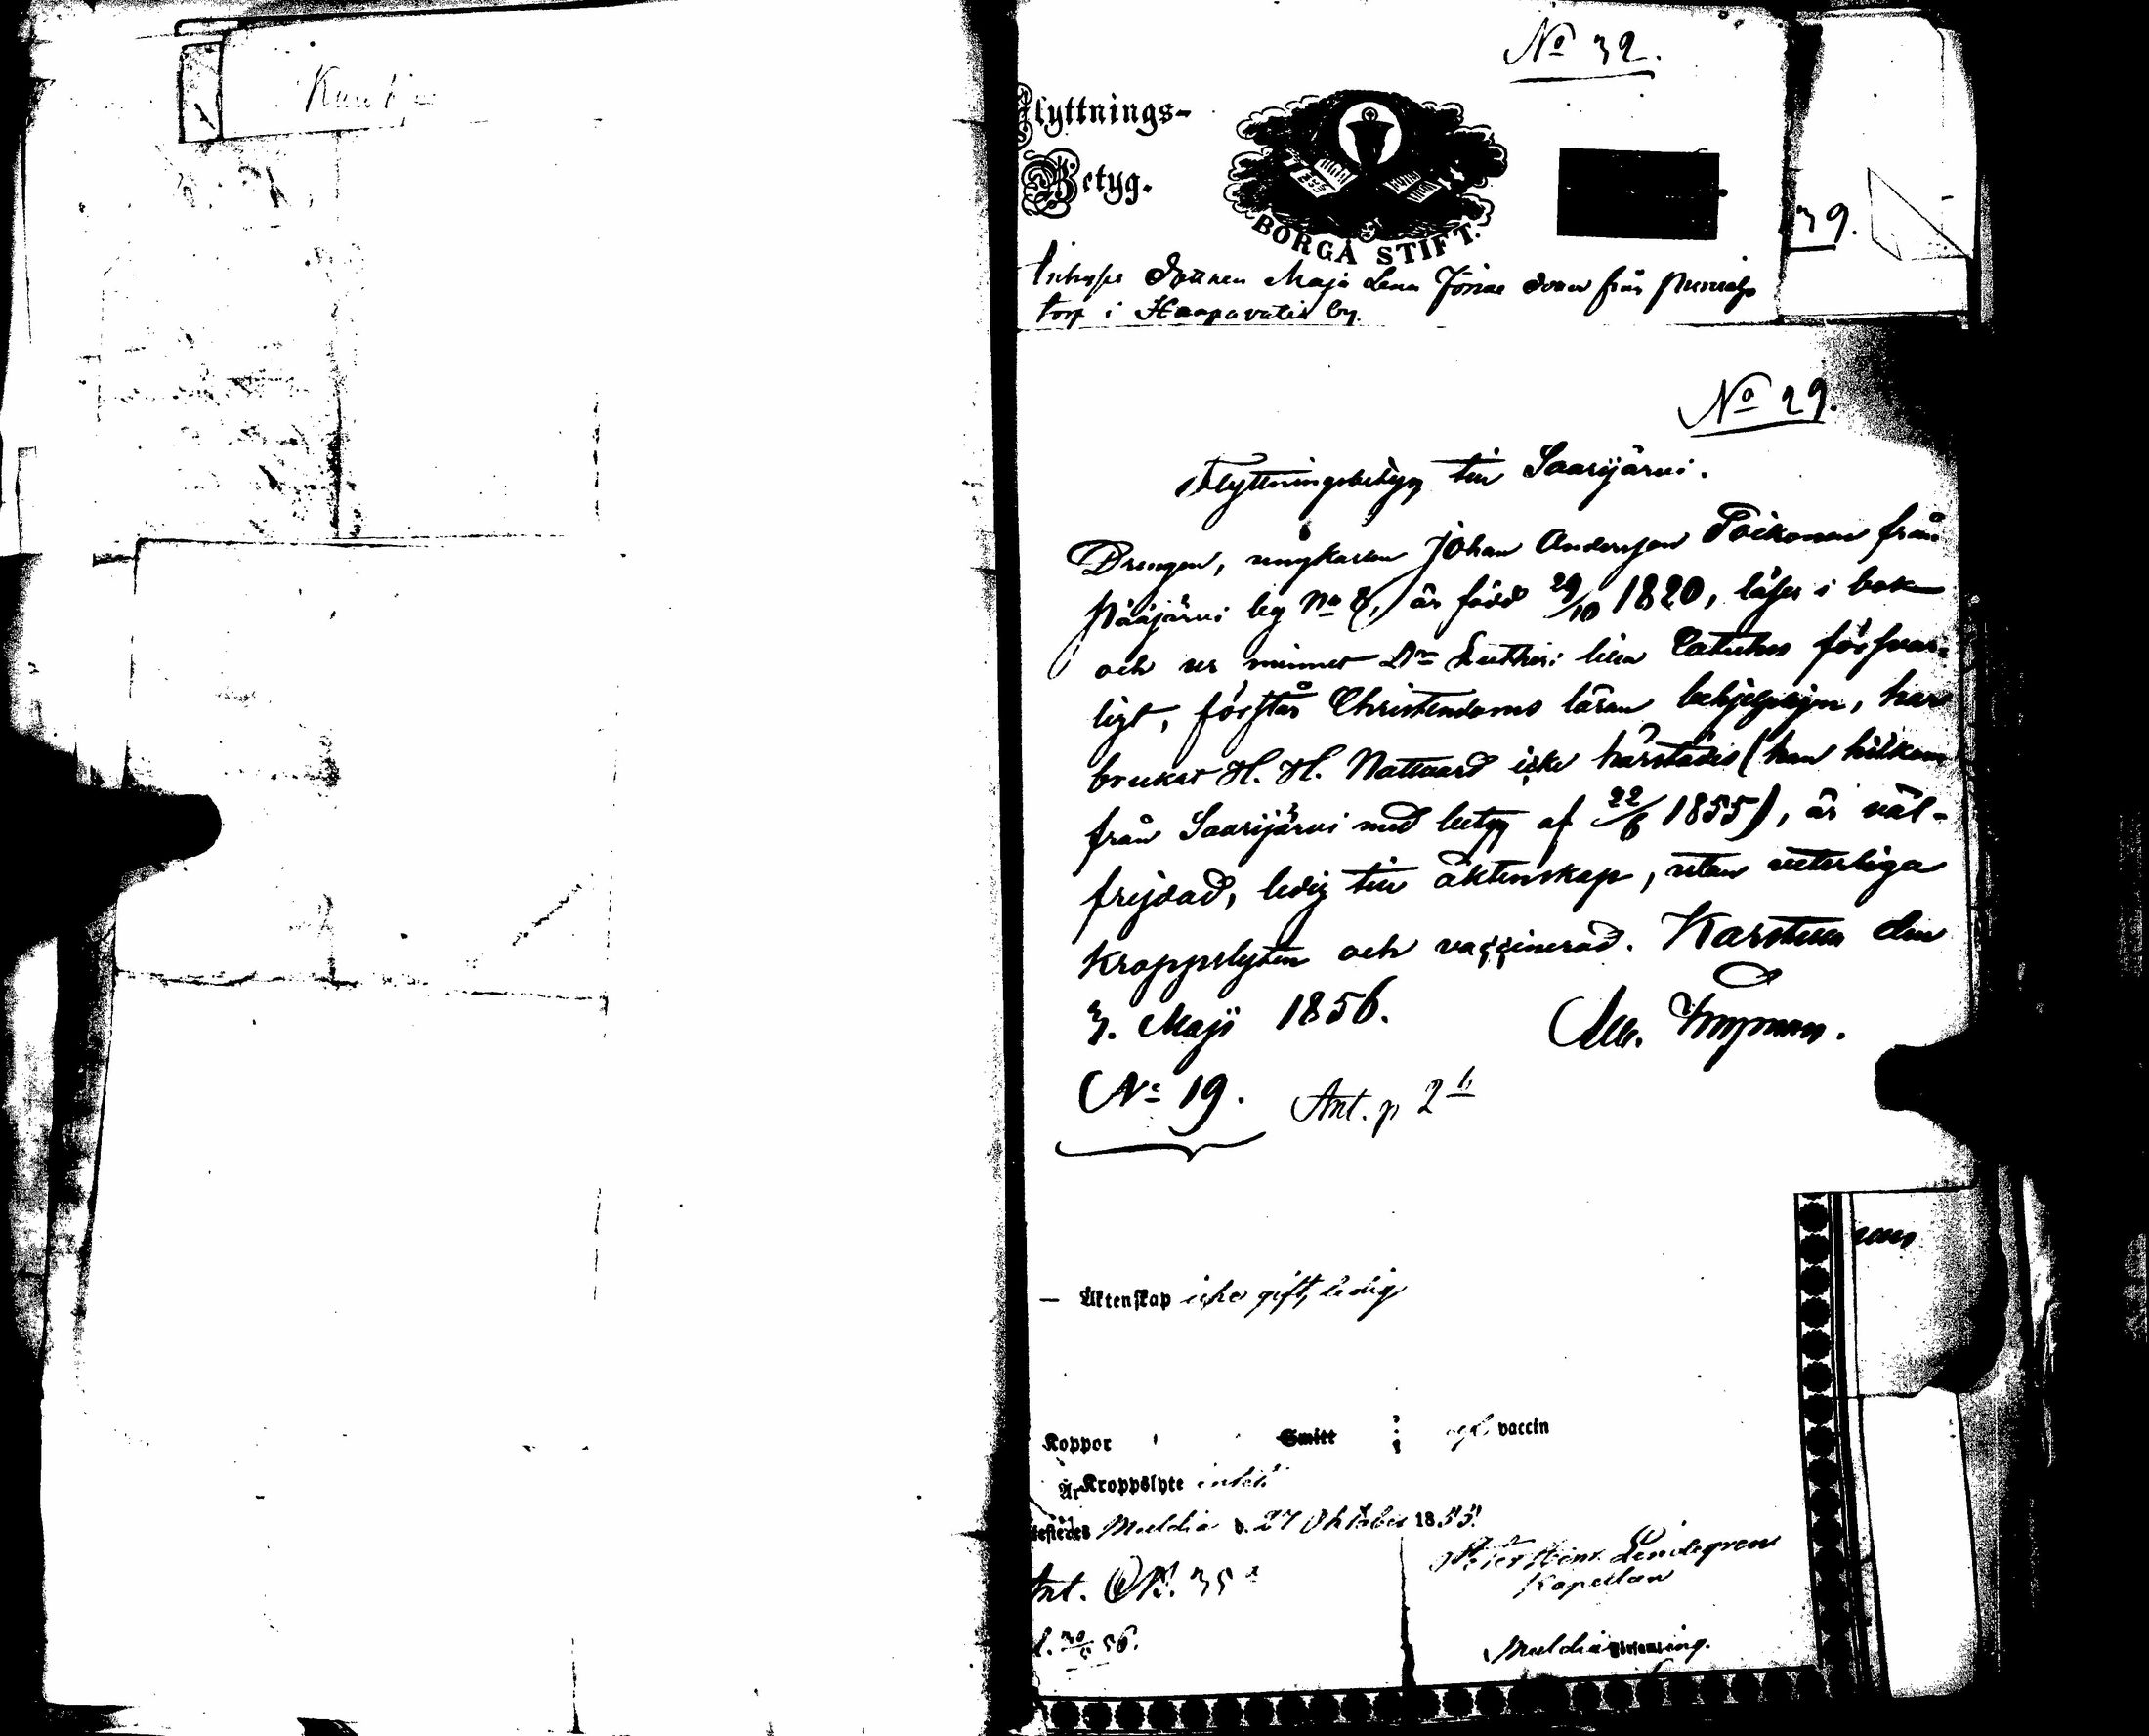 No 32.
Flyttnings-
Betyg.
BORGÅ STIFT.
39.
Maja Lena från
torp i Haapavatia by.
No 29.
Flyttningsbetyg till Saarijärvi.
Drengen, ungkarlen Johan Andersson Poikonen från
Pääjärvi by No 8, är född 29/10 1820, läser i bok
och ur minnet Dr Lutheri lilla Cateches försvar-
ligt, förstår Christendoms läran behjelpligen, har
brukat H. H. Nattvard icke härstädes (han hitkom
från Saarijärvi med betyg af 22/6 1855), är väl-
frejdad, ledig till äktenskap, utan veterliga
kroppslyten och vaccinerad. Karstula den
3. Maji 1856.
No 19. Ant. p 2
— Äktenskap icke gift, ledig
Koppor Smitt vaccin
Är Kroppslyte intet
Multia d. 27 Oktober 1855.
Lindegren
Kapellan
Ant. 35
56.
Multia